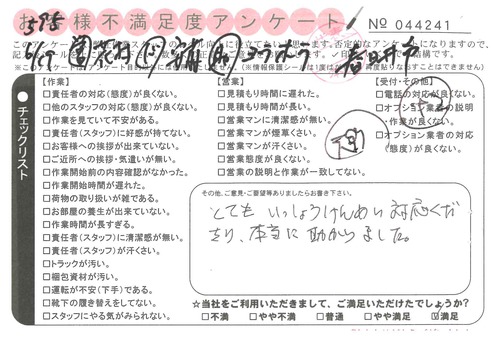 お客様不満足度アンケート
No 044241
598
チェックリスト
【作業】
□責任者の対応(態度)が良くない。
□他のスタッフの対応(態度)が良くない。
□作業を見ていて不安がある。
□責任者(スタッフ)に好感が持てない。
□お客様への挨拶が出来ていない。
□ご近所への挨拶・気遣いが無い。
□作業開始前の内容確認がなかった。
□作業開始時間が遅れた。
□荷物の取り扱いが雑である。
□お部屋の養生が出来ていない。
□作業時間が長すぎる。
□責任者(スタッフ)に清潔感が無い。
□責任者(スタッフ)が汗くさい。
□トラックが汚い。
□梱包資材が汚い。
□運転が不安(下手)である。
□靴下の履き替えをしてない。
□スタッフにやる気がみられない。
【営業】
□見積もり時間に遅れた。
□見積もり時間が長い。
□営業マンに清潔感が無い。
□営業マンが煙草くさい。
□営業マンが汗くさい。
□営業態度が良くない。
□営業の説明と作業が一致してない。
【受付・その他】
□電話の対応が良くない。
□オプション業者の説明・作業が良くない。
□オプション業者の対応(態度)が良くない。
その他、ご意見・ご要望等ありましたらお書き下さい。
とても いっしょうけんめい 対応くだ
さり、本当に 助かりました。
☆当社をご利用いただきまして、ご満足いただけたでしょうか?
□不満 □やや不満 □普通 □やや満足 ☑満足